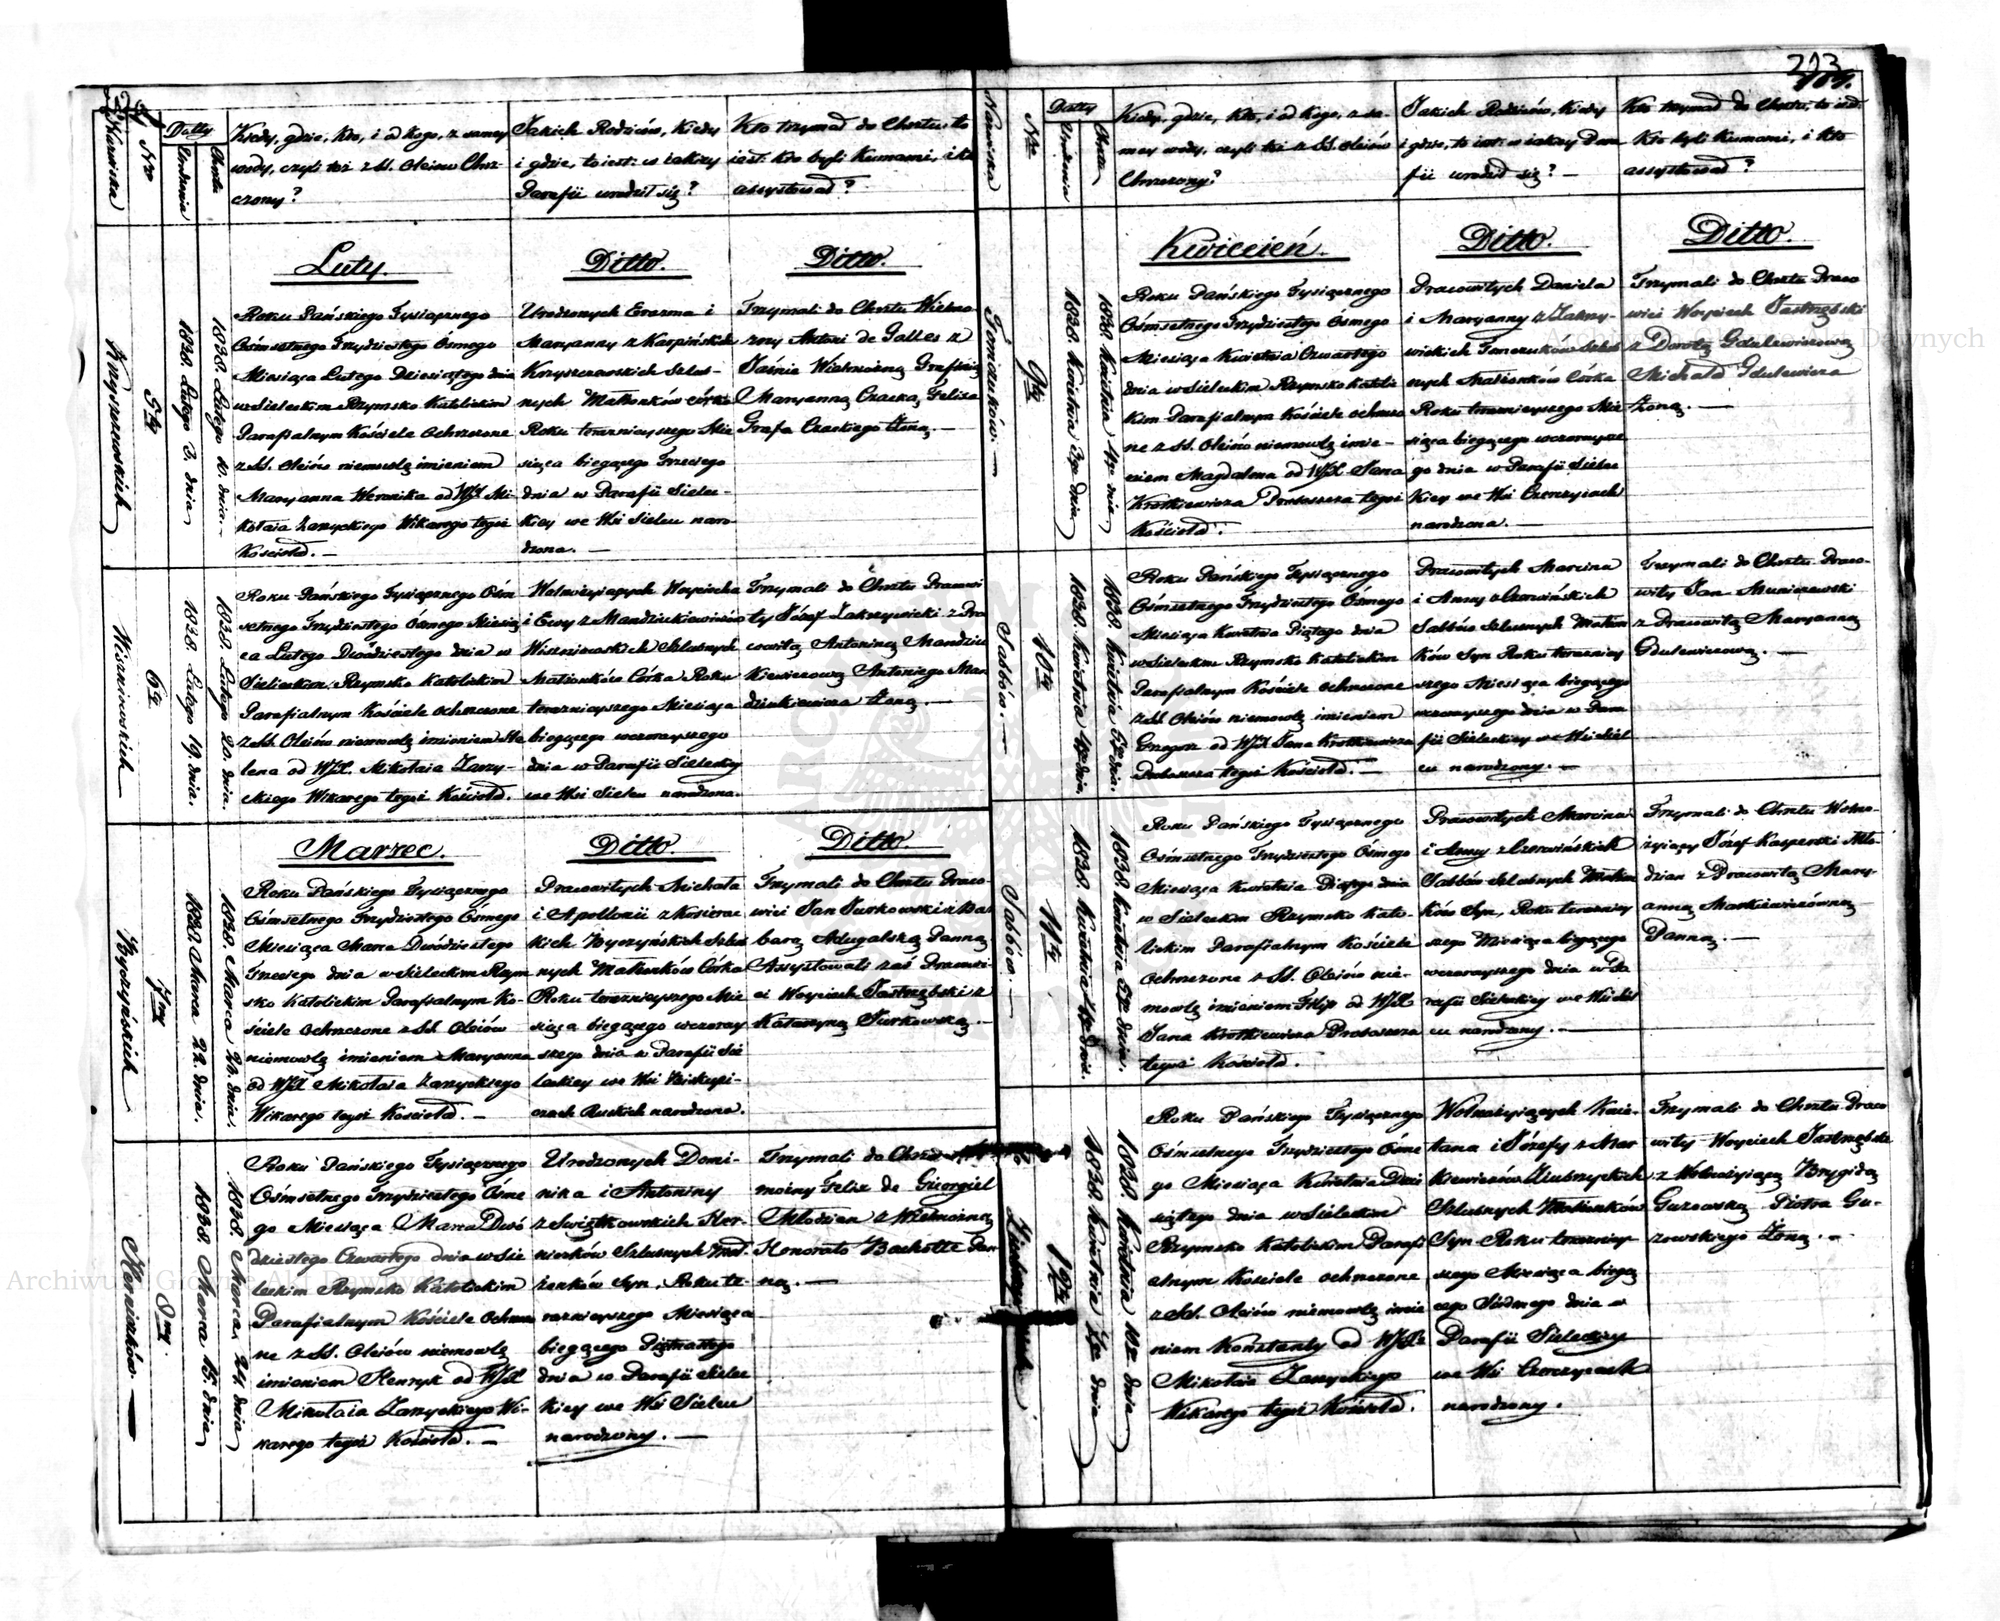 213
109.
Nazwiska
Nro
Datty
Urodzenia
Chrztu
Kiedy, gdzie, kto, i od kogo, z samey
wody, czyli też z SS. Oleiow Chrz
czony?
Jakich Rodziców, kiedy
i gdzie, to iest: w iakiey
Parafii urodził się?
Kto trzymał do Chrztu, to
iest: kto byli Kumami, i kto
assystował?
Luty.
Ditto.
Ditto.
Krzyszewskich
5ty
1838. Lutego 3. dnia
1838. Lutego 10. dnia.
Roku Pańskiego Tysiącznego
Ośmsetnego Trzydziestego Osmego
Miesiąca Lutego Dziesiątego dnia
w Sieleckim Rzymsko Katolickim
Parafialnym Kościele Ochrzczone
z SS. Oleiów niemowlę imieniem
Maryanna Weronika od WJX Mi
kołaia Zarzyckiego Wikarego tegoż
Kościoła. —
Urodzonych Erazma i
Maryanny z Karpińskich
Krzyszewskich Szlub-
nych Małżonków córka
Roku teraznieyszego Mie
siąca biegącego Trzeciego
dnia w Parafii Sielec-
kiey we Wsi Sielcu naro
dzona. —
Trzymali do Chrztu Wielmo
żny Antoni de Galles z
Jaśnie Wielmożną Grafinią
Maryanną Czacką, Felixa
Grafa Czackiego Żoną. —
Wiszniewskich
6ty
1838. Lutego 19. dnia.
1838. Lutego 20. dnia.
Roku Pańskiego Tysiącznego Ośm
setnego Trzydziestego Osmego Miesią
ca Lutego Dwódziestego dnia w
Sieleckim Rzymsko Katolickim
Parafialnym Kościele Ochrzczone
z SS. Oleiów niemowlę imieniem He
lena od WJX. Mikołaia Zarzy-
ckiego Wikarego tegoż Kościoła.
Wolnożyiących Woyciecha
i Ewy z Mandziukiewiczów
Wiszniewskich Szlubnych
Małżonków Córka Roku
teraznieyszego Miesiąca
biegącego wczorayszego
dnia w Parafii Sieleckiey
we Wsi Sielcu narodzona.
Trzymali do Chrztu Pracowi
ty Józef Zakrzywicki z Pra
cowitą Antoniną Mandziu
kiewiczową Antoniego Man
dziukiewicza Żoną. —
Marzec.
Ditto.
Ditto.
Byczyńskich
7my
1838. Marca 22. dnia.
1838. Marca 23. dnia.
Roku Pańskiego Tysiącznego
Ośmsetnego Trzydziestego Osmego
Miesiąca Marca Dwódziestego
Trzeciego dnia w Sieleckim Rzym
sko Katolickim Parafialnym Ko-
ściele Ochrzczone z SS. Oleiów
niemowlę imieniem Maryanna
od WJX Mikołaia Zarzyckiego
Wikarego tegoż Kościoła. —
Pracowitych Michała
i Apollonii z Kosierac
kich Byczyńskich Szlu
bnych Małżonków Córka
Roku teraznieyszego Mie
siąca biegącego wczoray
szego dnia w Parafii Sie
leckiey we Wsi Biskupi-
czach Ruskich narodzona.
Trzymali do Chrztu Praco-
wici Jan Turkowski z Bar
barą Adugalską Panną
Assystowali zaś Pracowi-
ci Woyciech Jastrzębski z
Katarzyną Turkowską. —
Herniczków.
8my
1838. Marca 15. dnia
1838. Marca. 24. dnia
Roku Pańskiego Tysiącznego
Ośmsetnego Trzydziestego Osme
go Miesiąca Marca Dwó
dziestego Czwartego dnia w Sie
leckim Rzymsko Katolickim
Parafialnym Kościele Ochrzczo
ne z SS. Oleiów niemowlę
imieniem Henryk od WJX
Mikołaia Zarzyckiego Wi-
karego tegoż Kościoła. —
Urodzonych Domi-
nika i Antoniny
z Świątkowskich Her-
niczków Szlubnych Mał-
żonków Syn, Roku te-
raznieyszego Miesiąca
biegącego Piętnastego
dnia w Parafii Sielec
kiey we Wsi Sielcu
narodzony. —
Trzymali do Chrztu
możny Felix de Giżorgiel
Młodzian z Wielmożną
Honoratą Bacholtz Pan
ną. —
Nazwiska
Nro
Datty
Urodzenia
Chrztu
Kiedy, gdzie, kto, i od kogo, z sa-
mey wody, czyli też z SS. Oleiów
Chrzczony?
Jakich Rodziców, kiedy
i gdzie, to iest: w iakiey Para
fii urodził się? —
Kto trzymał do Chrztu, to iest:
Kto byli Kumami, i kto
assystował?
Kwiecień.
Ditto.
Ditto.
Tomiduków. —
9ty
1838. Kwietnia 3go dnia
1838. Kwietnia 4go dnia
Roku Pańskiego Tysiącznego
Ośmsetnego Trzydziestego Ósmego
Miesiąca Kwietnia Czwartego
dnia w Sieleckim Rzymsko Katolic
kim Parafialnym Kościele Ochrzczo
ne z SS. Oleiów niemowlę imie-
niem Magdalena od WJX. Jana
Krotkiewicza Proboszcza tegoż
Kościoła.
Pracowitych Daniela
i Maryanny z Zakrzy-
wickich Tomiduków Szlub
nych Małżonków Córka
Roku teraznieyszego Mie
siąca biegącego wczorayszo
go dnia w Parafii Sielec
kiey we Wsi Czerczycach
narodzona. —
Trzymali do Chrztu Praco
wici Woyciech Jastrzębski
z Dorotą Gdulewiczową
Michała Gdulewicza
Żoną. —
Sabbów. —
10ty
1838. Kwietnia 4go dnia.
1838. Kwietnia 5go dnia.
Roku Pańskiego Tysiącznego
Ośmsetnego Trzydziestego Ósmego
Miesiąca Kwietnia Piątego dnia
w Sieleckim Rzymsko Katolickim
Parafialnym Kościele Ochrzczone
z SS. Oleiów niemowlę imieniem
Grzegorz od WJX Jana Krotkiewicza
Proboszcza tegoż Kościoła. —
Pracowitych Marcina
i Anny z Czerwińskich
Sabbów Szlubnych Małżon
ków Syn Roku terazniey
szego Miesiąca biegącego
wczorayszego dnia w Para
fii Sieleckiey we Wsi Siel
cu narodzony. —
Trzymali do Chrztu Praco-
wity Jan Muniszewski
z Pracowitą Maryanną
Gdulewiczową. —
Sabbów. —
11ty
1838. Kwietnia 4go dnia.
1838. Kwietnia 5go dnia.
Roku Pańskiego Tysiącznego
Ośmsetnego Trzydziestego Ósmego
Miesiąca Kwietnia Piątego dnia
w Sieleckim Rzymsko Kato-
lickim Parafialnym Kościele
Ochrzczone z SS. Oleiów nie-
mowlę imieniem Filip od WJX
Jana Krotkiewicza Proboszcza
tegoż Kościoła.
Pracowitych Marcina
i Anny z Czerwińskich
Sabbów Szlubnych Małżon
ków Syn, Roku terazniey
szego Miesiąca biegącego
wczorayszego dnia w Pa
rafii Sieleckiey we Wsi Siel
cu narodzony. —
Trzymali do Chrztu Wolno-
żyiący Józef Kasperski Mło-
dzian z Pracowitą Mary-
anną Markiewiczówną
Panną. —
12ty
1838. Kwietnia 7go dnia
1838. Kwietnia 10go dnia
Roku Pańskiego Tysiącznego
Ośmsetnego Trzydziestego Osme
go Miesiąca Kwietnia Dzie
siątego dnia w Sieleckim
Rzymsko Katolickim Parafi
alnym Kościele ochrzczone
z SS. Oleiów niemowlę imie
niem Konstanty od WJX
Mikołaia Zarzyckiego
Wikarego tegoż Kościoła.
Wolnożyiących Kaie-
tana i Józefy z Mar
kiewiczów
Szlubnych Małżonków
Syn Roku terazniey
szego Miesiąca biegą
cego Siódmego dnia w
Parafii Sieleckiey
we Wsi Czerczycach
narodzony.
Trzymali do Chrztu Praco
wity Woyciech Jastrzębski
z Wolnożyiącą Brygidą
Guzowską Piotra Gu-
zowskiego Żoną. —
Archiwum Główne Akt Dawnych
Archiwum Główne Akt Dawnych